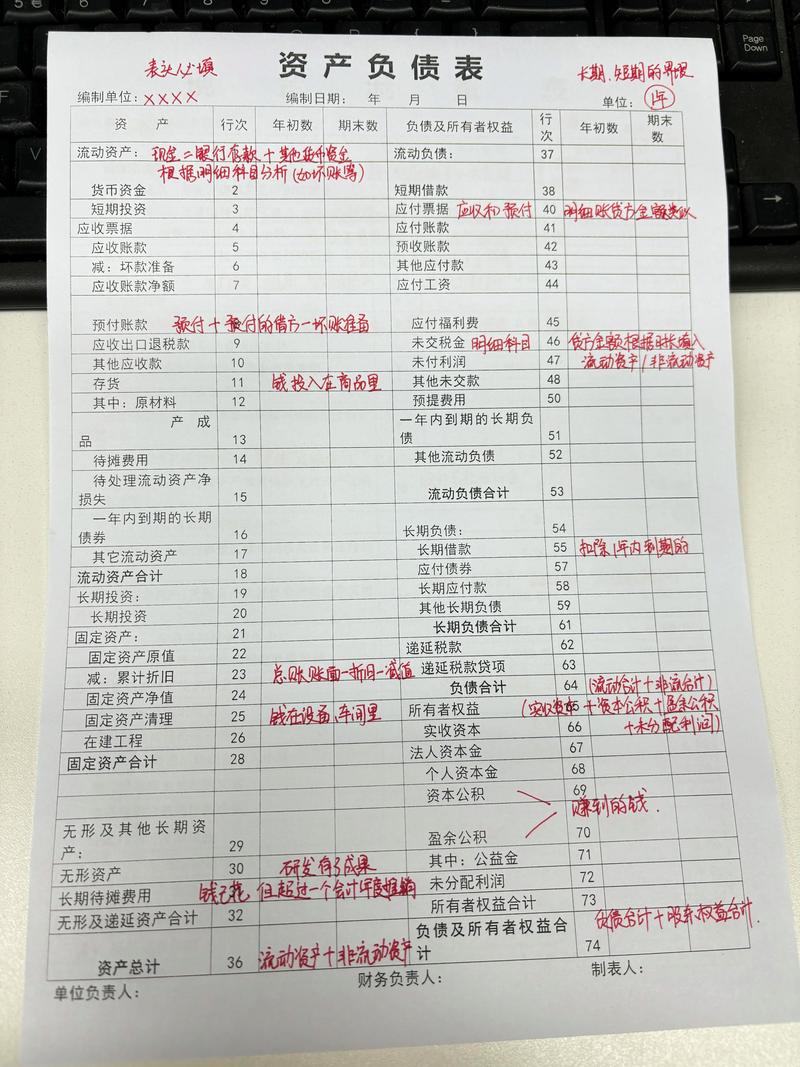 表头必填
资产负债表
长期、短期的界限
编制单位：XXXX 编制日期： 年 月 日 单位： 1年
资 产 行次 年初数 期末数 负债及所有者权益 行次 年初数 期末数
流动资产： 现金=银行存款+其他货币资金 流动负债： 37
根据明细科目分析(如坏账等)
货币资金 2 短期借款 38
短期投资 3 应付票据 应收和预付 40 明细账贷方金额类似
应收票据 4 应付账款 41
应收账款 5 预收账款 42
减：坏款准备 6 其他应付款 43
应收账款净额 7 应付工资 44
预付账款 预付+预付的借方-坏账准备 应付福利费 45
应收出口退税款 9 未交税金 明细科目 46 贷方金额根据时长填入
其他应收款 10 未付利润 47 流动资产/非流动资产
存货 11 钱投入在商品里 其他未交款 48
其中：原材料 12 预提费用 50
产成品 13 一年内到期的长期负债 51
待摊费用 14 其他流动负债 52
待处理流动资产净损失 15 流动负债合计 53
一年内到期的长期债券 16 长期负债： 54
其它流动资产 17 长期借款 55 扣除1年内到期的
流动资产合计 18 应付债券 57
长期投资： 19 长期应付款 58
长期投资 20 其他长期负债 59
固定资产： 21 长期负债合计 61
固定资产原值 22 递延税款 62
减：累计折旧 23 总账账面-折旧-减值 递延税款贷项 63
固定资产净值 24 负债合计 64 (流动合计+非流合计)
固定资产清理 25 钱在设备、车间里 所有者权益 65 (实收资本+资本公积+盈余公积
在建工程 26 实收资本 66 +未分配利润)
固定资产合计 28 法人资本金 67
个人资本金 68
资本公积 69
赚到的钱.
无形及其他长期资产： 29 盈余公积 70
无形资产 30 研发有了成果 其中：公益金 71
长期待摊费用 钱已花 但超过一个会计年度摊销 未分配利润 72
无形及递延资产合计 32 所有者权益合计 73
资产总计 36 流动资产+非流动资产 负债及所有者权益合计 74 负债合计+股东权益合计.
单位负责人： 财务负责人： 制表人：